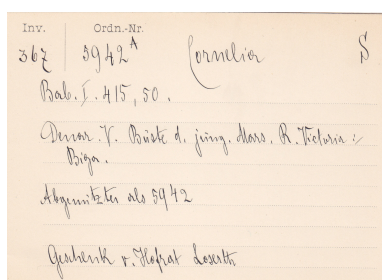 Inv. Ordn.-Nr.
367 5942 A Cornelia S
Bab. I. 415, 50.
Denar. V. Büste d. jung. Mars. R. Victoria i/
Biga.
Abgenützter als 5942
Geschenk v. Hofrat Loserth